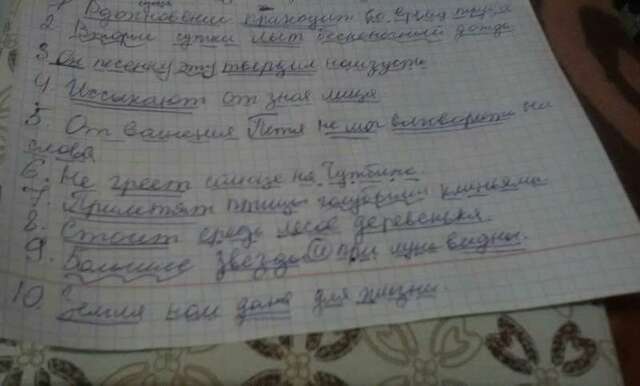 1. Вдохновение приходит во время труда
2. Вторые сутки льёт бесконечный дождь
3. Он песенку эту твердил наизусть
4. Иссыхают от зноя лица
5. От волнения Петя не мог выговорить ни
слова
6. Не греет солнце на чужбине.
7. Прилетят птицы голубыми клиньями.
8. Стоит средь лесов деревенька.
9. Большие звёзды и при луне видны.
10. Земля нам дана для жизни